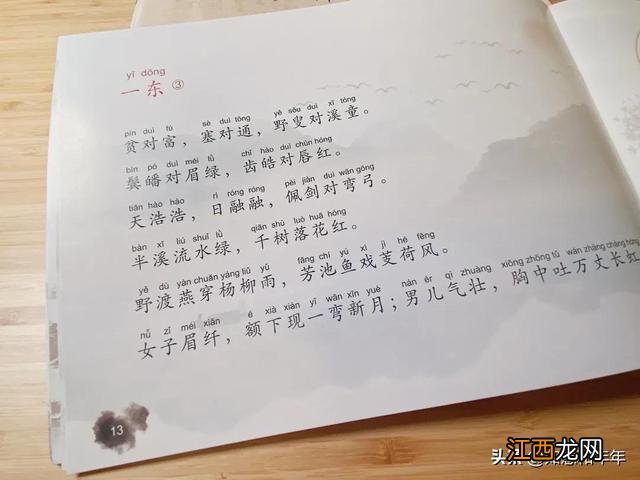 yī dōng
一东③
pín duì fù sè duì tōng yě sǒu duì xī tóng
贫对富，塞对通，野叟对溪童。
bìn pó duì méi lǜ chǐ hào duì chún hóng
鬓皤对眉绿，齿皓对唇红。
tiān hào hào rì róng róng pèi jiàn duì wān gōng
天浩浩，日融融，佩剑对弯弓。
bàn xī liú shuǐ lǜ qiān shù luò huā hóng
半溪流水绿，千树落花红。
yě dù yàn chuān yáng liǔ yǔ fāng chí yú xì jì hé fēng
野渡燕穿杨柳雨，芳池鱼戏芰荷风。
nǚ zǐ méi xiān é xià xiàn yī wān xīn yuè nán ér qì zhuàng xiōng zhōng tǔ wàn zhàng cháng hóng
女子眉纤，额下现一弯新月；男儿气壮，胸中吐万丈长虹
13
江西龙网